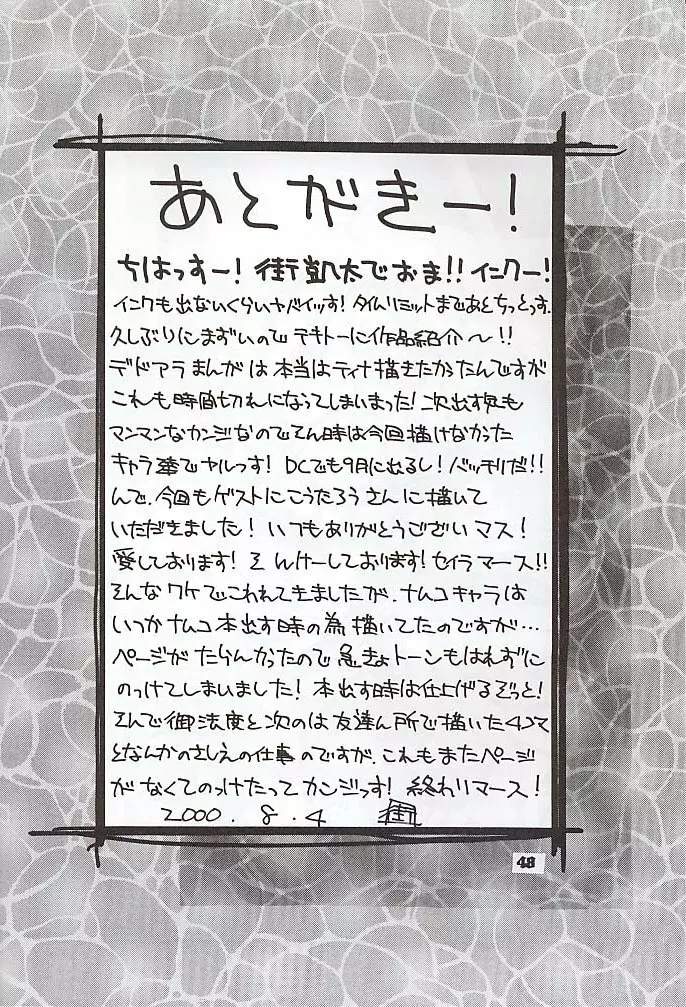 あとがきー!
ちはっすー! 街凱太でおま!! インクー!
インクも出ないくらいヤバイッす! タイムリミットまであとちっとっす.
久しぶりにまずいので テキトーに作品紹介〜!!
デドアラ まんがは 本当はティナ描きたかったんですが
これも時間切れになってしまいまった! 次出す時も
マンマンなカンジなのでそん時は今回描けなかった
キャラ達でヤルっす! DCでも9月に出るし! バッチリだ!!
んで、今回もゲストにこうたろうさんに描いて
いただきました! いつもありがとうございマス!
愛しております! そんけーしております! セイラマース!!
そんなワケでこわれてきましたが、ナムコキャラは
いつかナムコ本出す時の為描いてたのですが…
ページがたらんかったので急きょトーンもはれずに
のっけてしまいました! 本出す時は仕上げるぞっと!
そんで御法度と次のは友達ん所で描いた4コマ
となんかのさしえの仕事のですが、これもまたページ
がなくてのっけたってカンジっす! 終わりマース!
2000.8.4 街
48